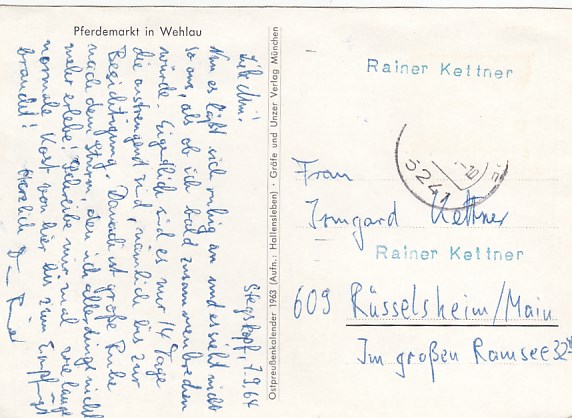 Pferdemarkt in Wehlau
Stegskopf, 7.9.64
Liebe Imi!
Nun es läßt sich ruhig an und es sieht nicht
so aus, als ob ich bald zusammenbrechen
würde. Eigentlich sind es nur 14 Tage
die anstrengend sind, nämlich bis zur
Besichtigung. Danach ist große Ruhe
nach dem Sturm, den ich allerdings nicht
mehr erlebe! Schreibe mir mal wie lange
normale Post von hier bis zum Empfang
braucht!
Herzlich
Ostpreußenkalender 1963 (Aufn.: Hallensleben) · Gräfe und Unzer Verlag München
Rainer Kettner
5241
Frau
Irmgard Kettner
Rainer Kettner
609 Rüsselsheim/Main
Im großen Ramsee 32